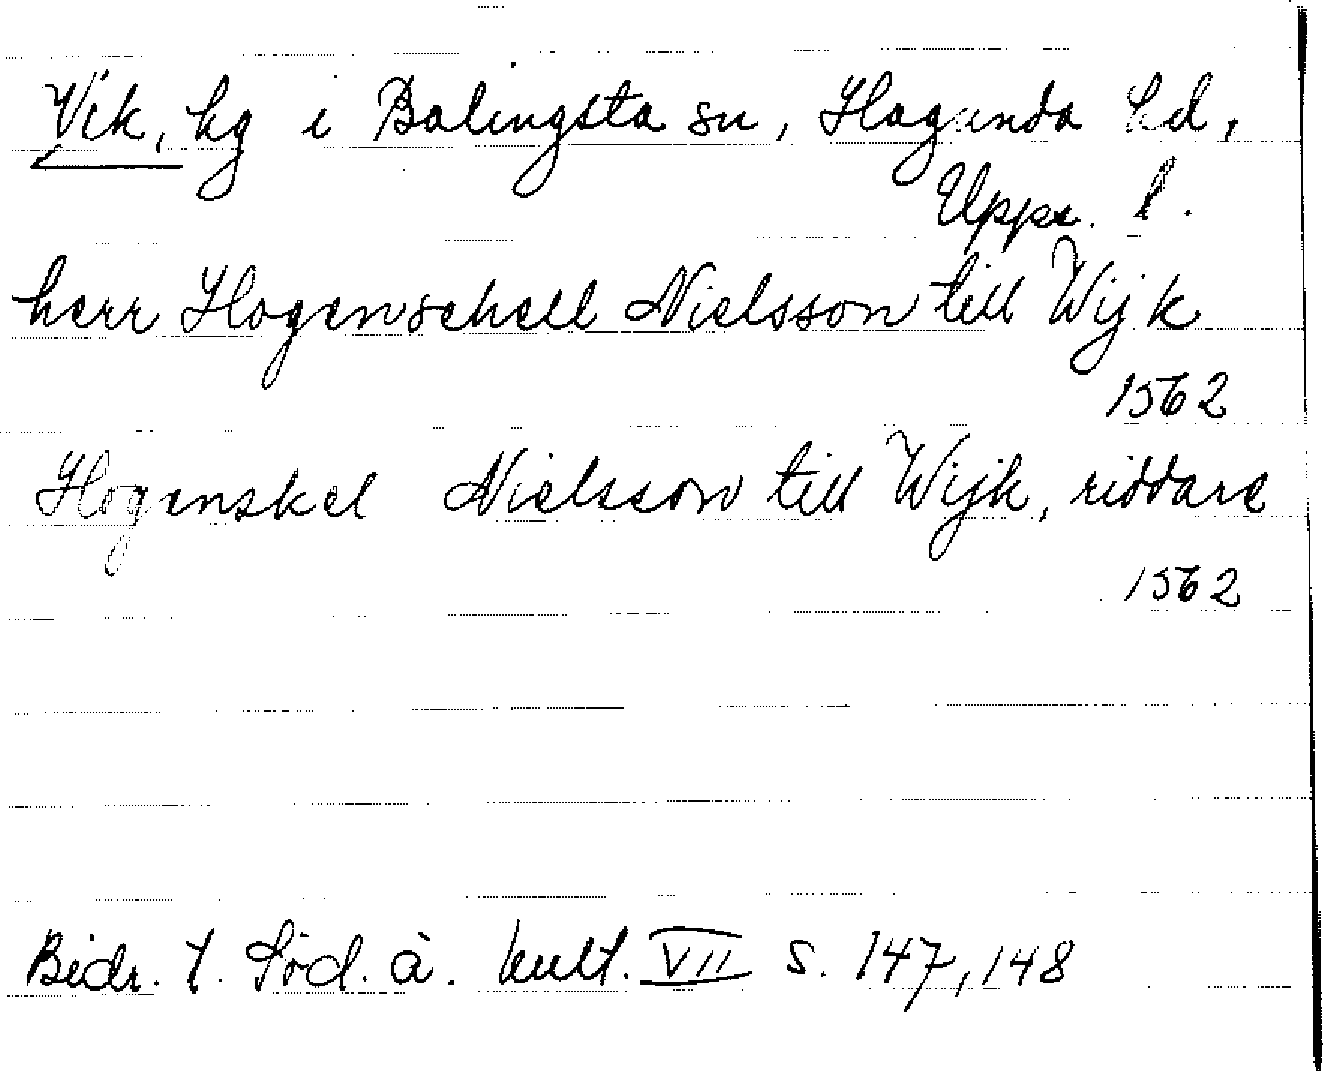 Vik, hg i Balingsta sn, Hagunda hd,
Upps. l.
herr Hogenschell Nielsson till Wijk
1562
Hogenskel Nielsson till Wijk, riddare
1562
Bidr. t. Söd. ä. kult. VII s. 147, 148